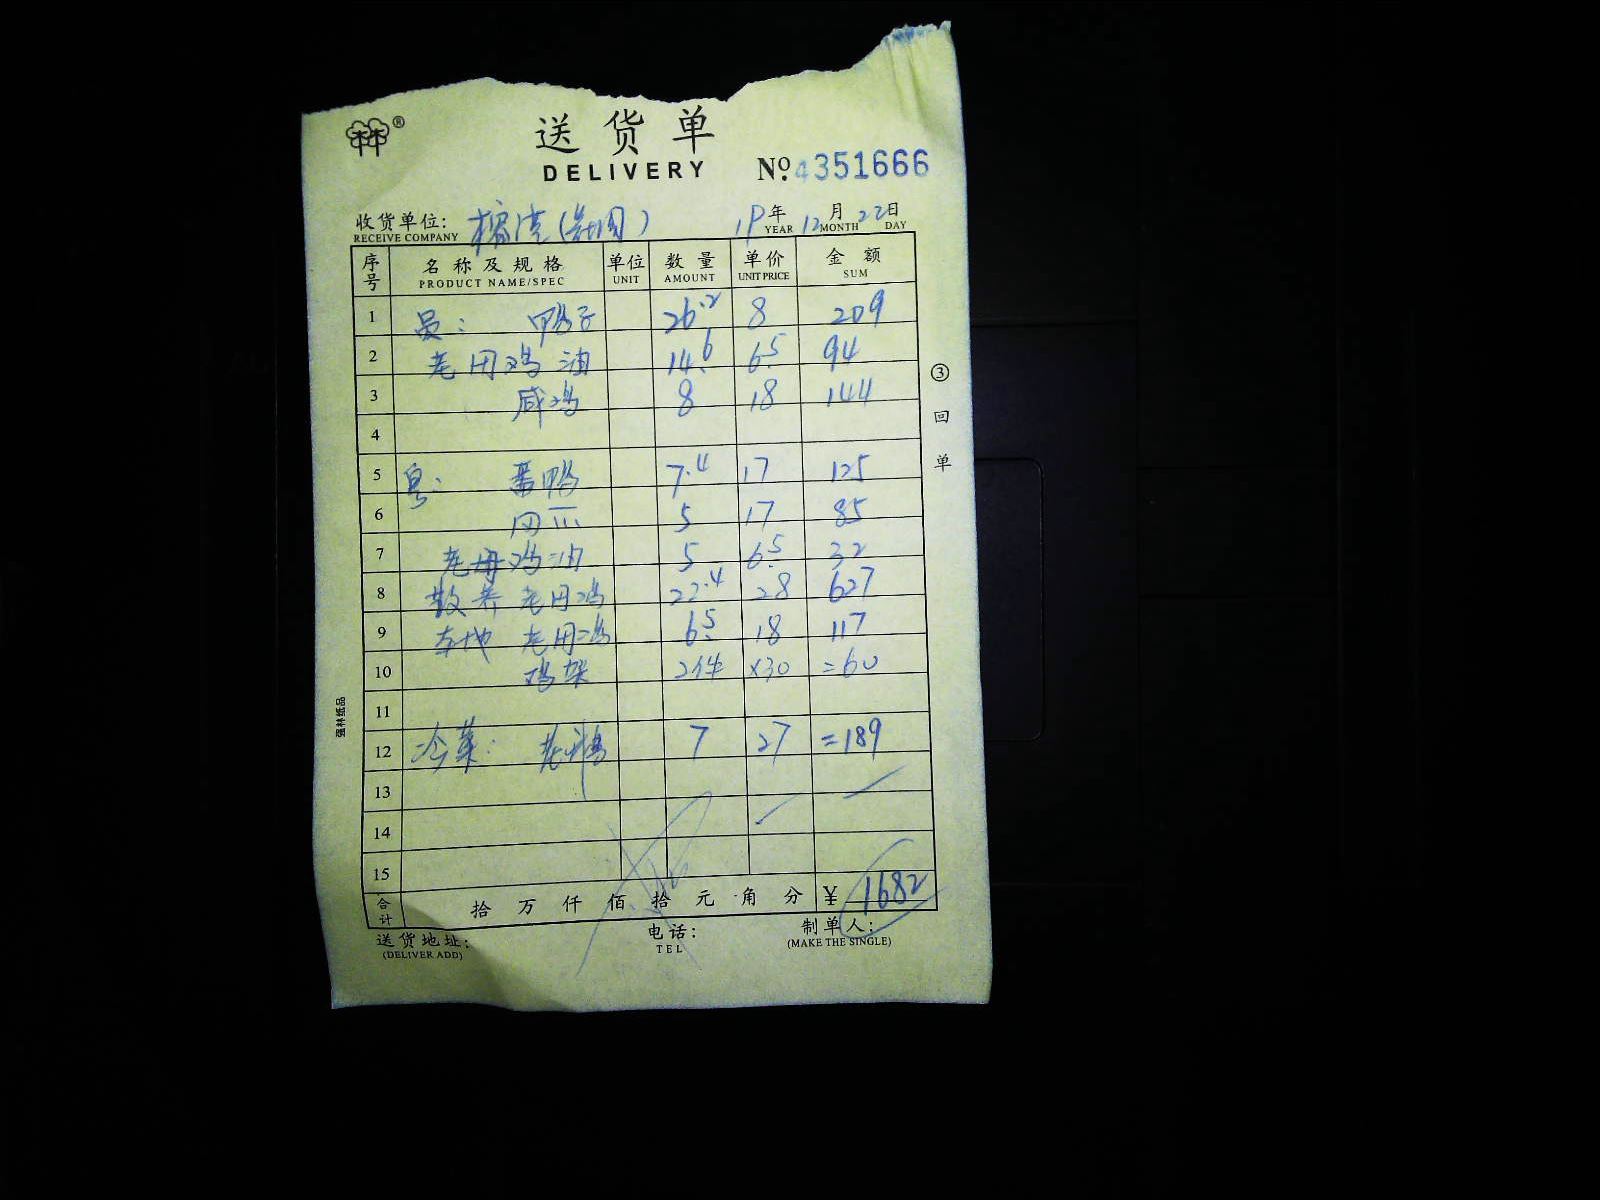 ®
送货单
DELIVERY No. 4351666
收货单位: 19年12月22日
RECEIVE COMPANY YEAR MONTH DAY
序号 名称及规格 单位 数量 单价 金额
PRODUCT NAME/SPEC UNIT AMOUNT UNIT PRICE SUM
1 员: 鸭子 26.2 8 209
2 老母鸡油 14.6 6.5 94
3 咸鸡 8 18 144
4
5 粤: 番鸭 7.4 17 125
6 5 17 85
7 老母鸡油 5 6.5 32
8 散养老母鸡 22.4 28 627
9 本地老母鸡 6.5 18 117
10 鸡架 2件 ×30 =60
11
12 冷菜: 老鸭 7 27 =189
13
14
15
合计 拾万仟佰拾元角分 ¥ 1682
送货地址: 电话: 制单人:
(DELIVER ADD) TEL (MAKE THE SINGLE)
③回单
强林纸品